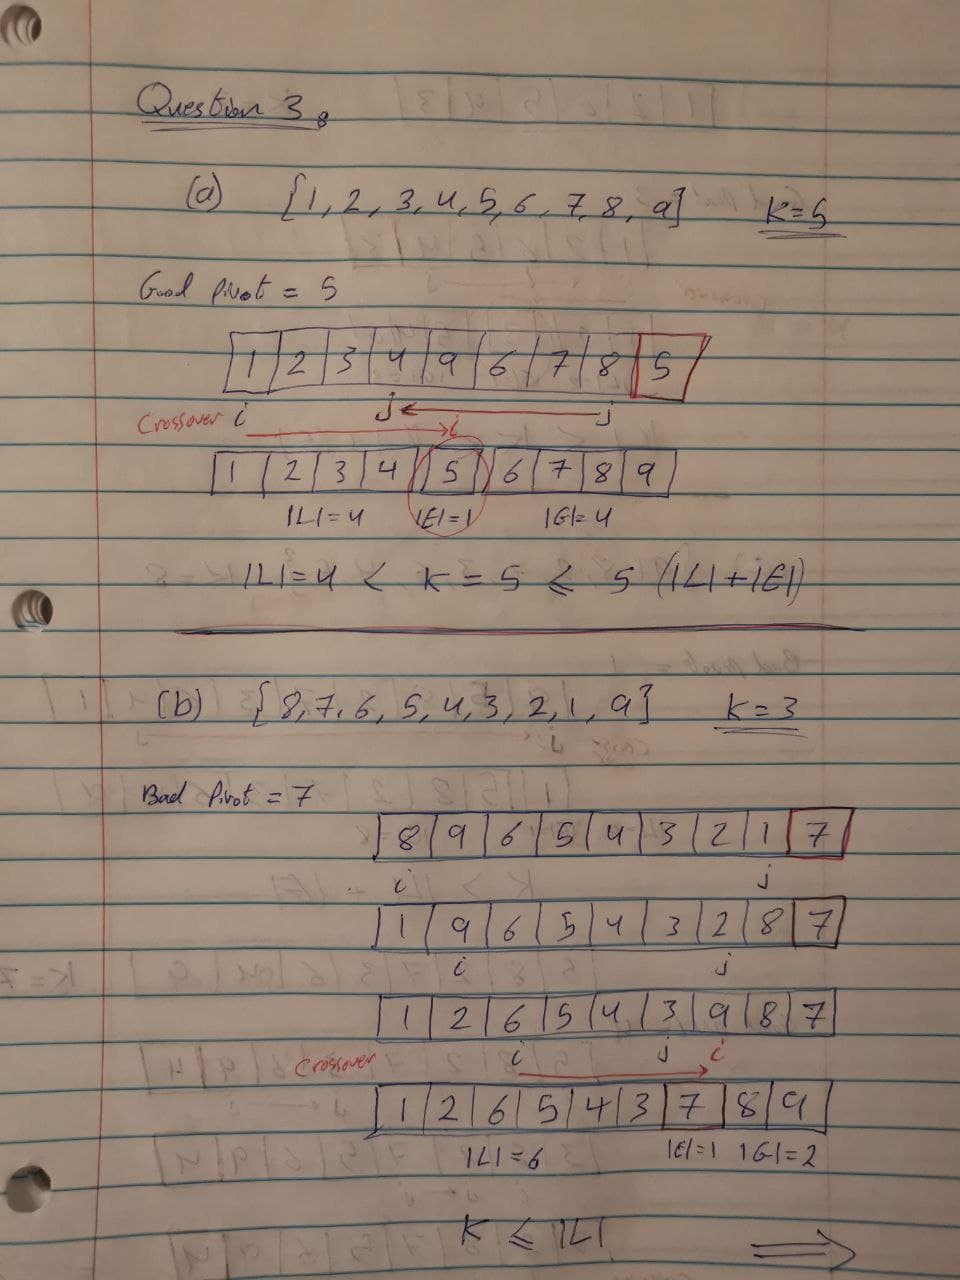 Question 3.
(a) {1, 2, 3, 4, 5, 6, 7, 8, 9} K=5
Good Pivot = 5
1 2 3 4 9 6 7 8 5
Crossover i j i j
1 2 3 4 5 6 7 8 9
|L|=4 |E|=1 |G|=4
|L|=4 < K = 5 ≤ 5 (|L|+|E|)
(b) {8, 7, 6, 5, 4, 3, 2, 1, 9} K=3
Bad Pivot = 7
8 9 6 5 4 3 2 1 7
i j
1 9 6 5 4 3 2 8 7
i j
1 2 6 5 4 3 9 8 7
Crossover i j i
1 2 6 5 4 3 7 8 9
|L|=6 |E|=1 |G|=2
K ≤ |L| ⟹